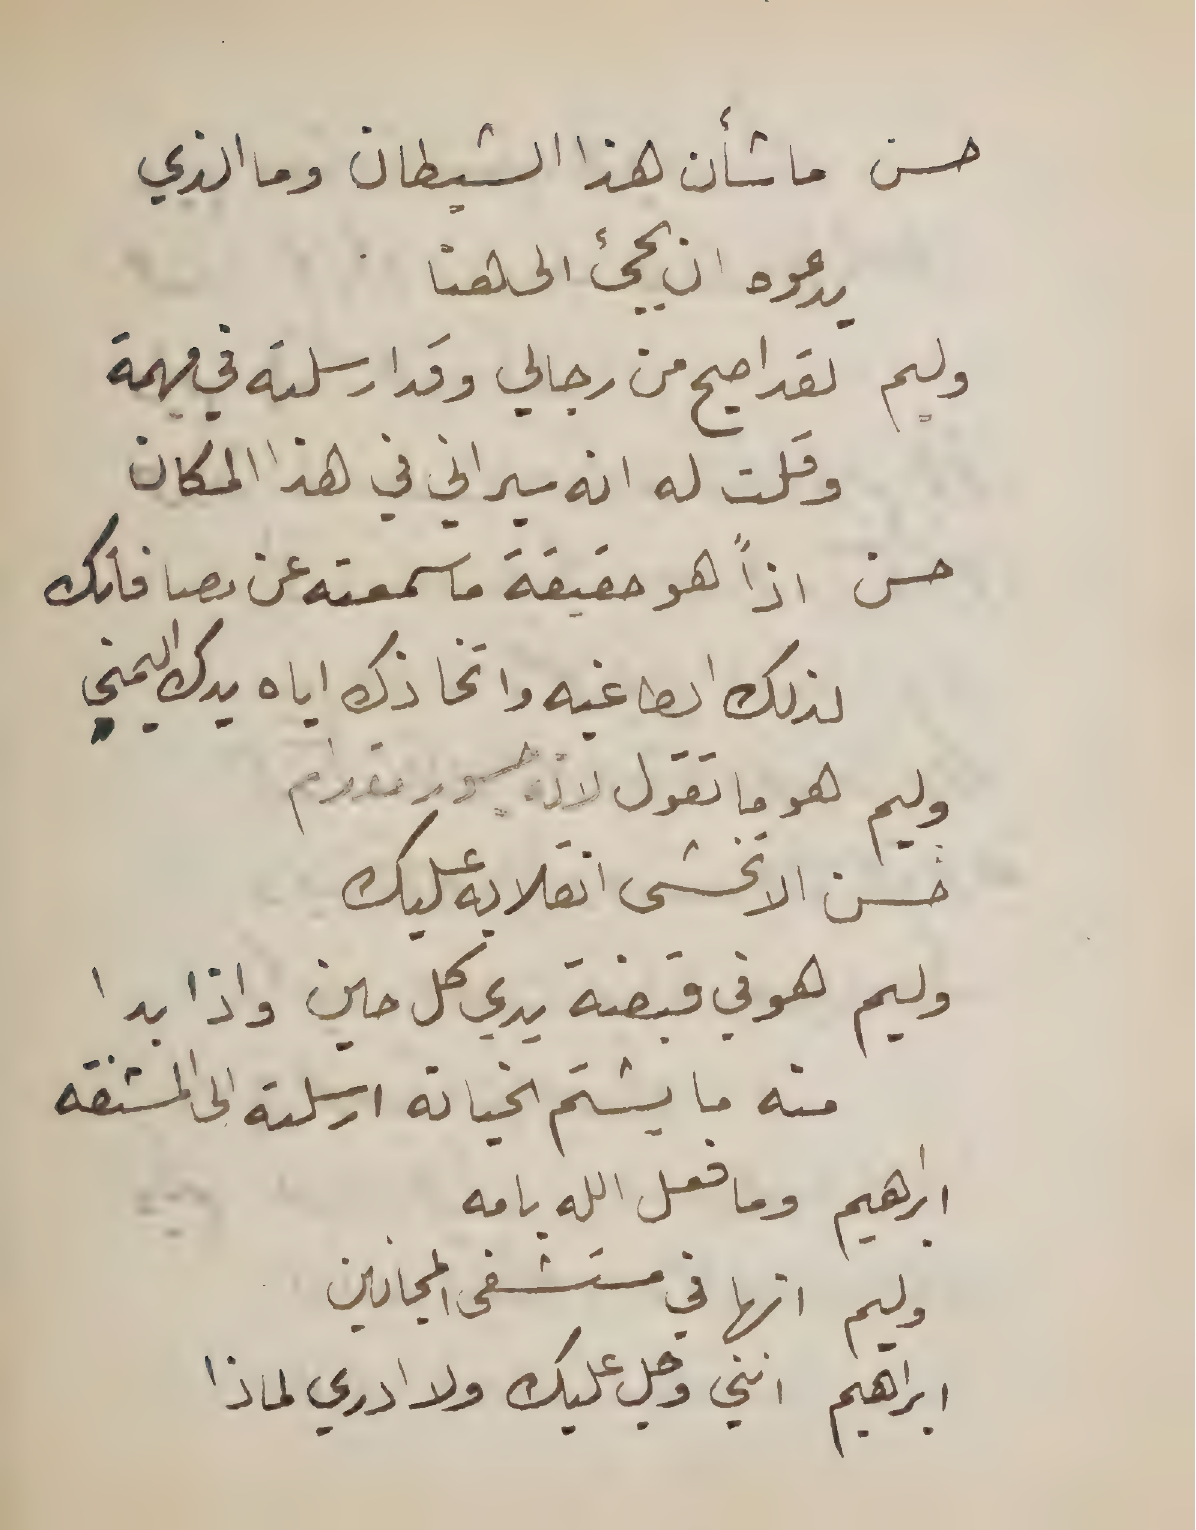 حسن ما شأن هذا الشيطان وما الذي
يدعوه ان يجيئ الى هنا
وليم لقد اصبح من رجالي وقد ارسلته في مهمة
وقلت له انه سيراني في هذا المكان
حسن اذاً هو حقيقة ما سمعته عن مصافاتك
لذلك الطاغيه واتخاذك اياه يدك اليمنى
وليم هو ما تقول لانه جسور مقدام
حسن الا تخشى انقلابه عليك
وليم هو في قبضة يدي كل حين واذا بدا
منه ما يشتم الخيانه ارسلته الى المشنقه
ابراهيم وما فعل الله بامه
وليم انها في مستشفى المجانين
ابراهيم انني وجل عليك ولا ادري لماذا